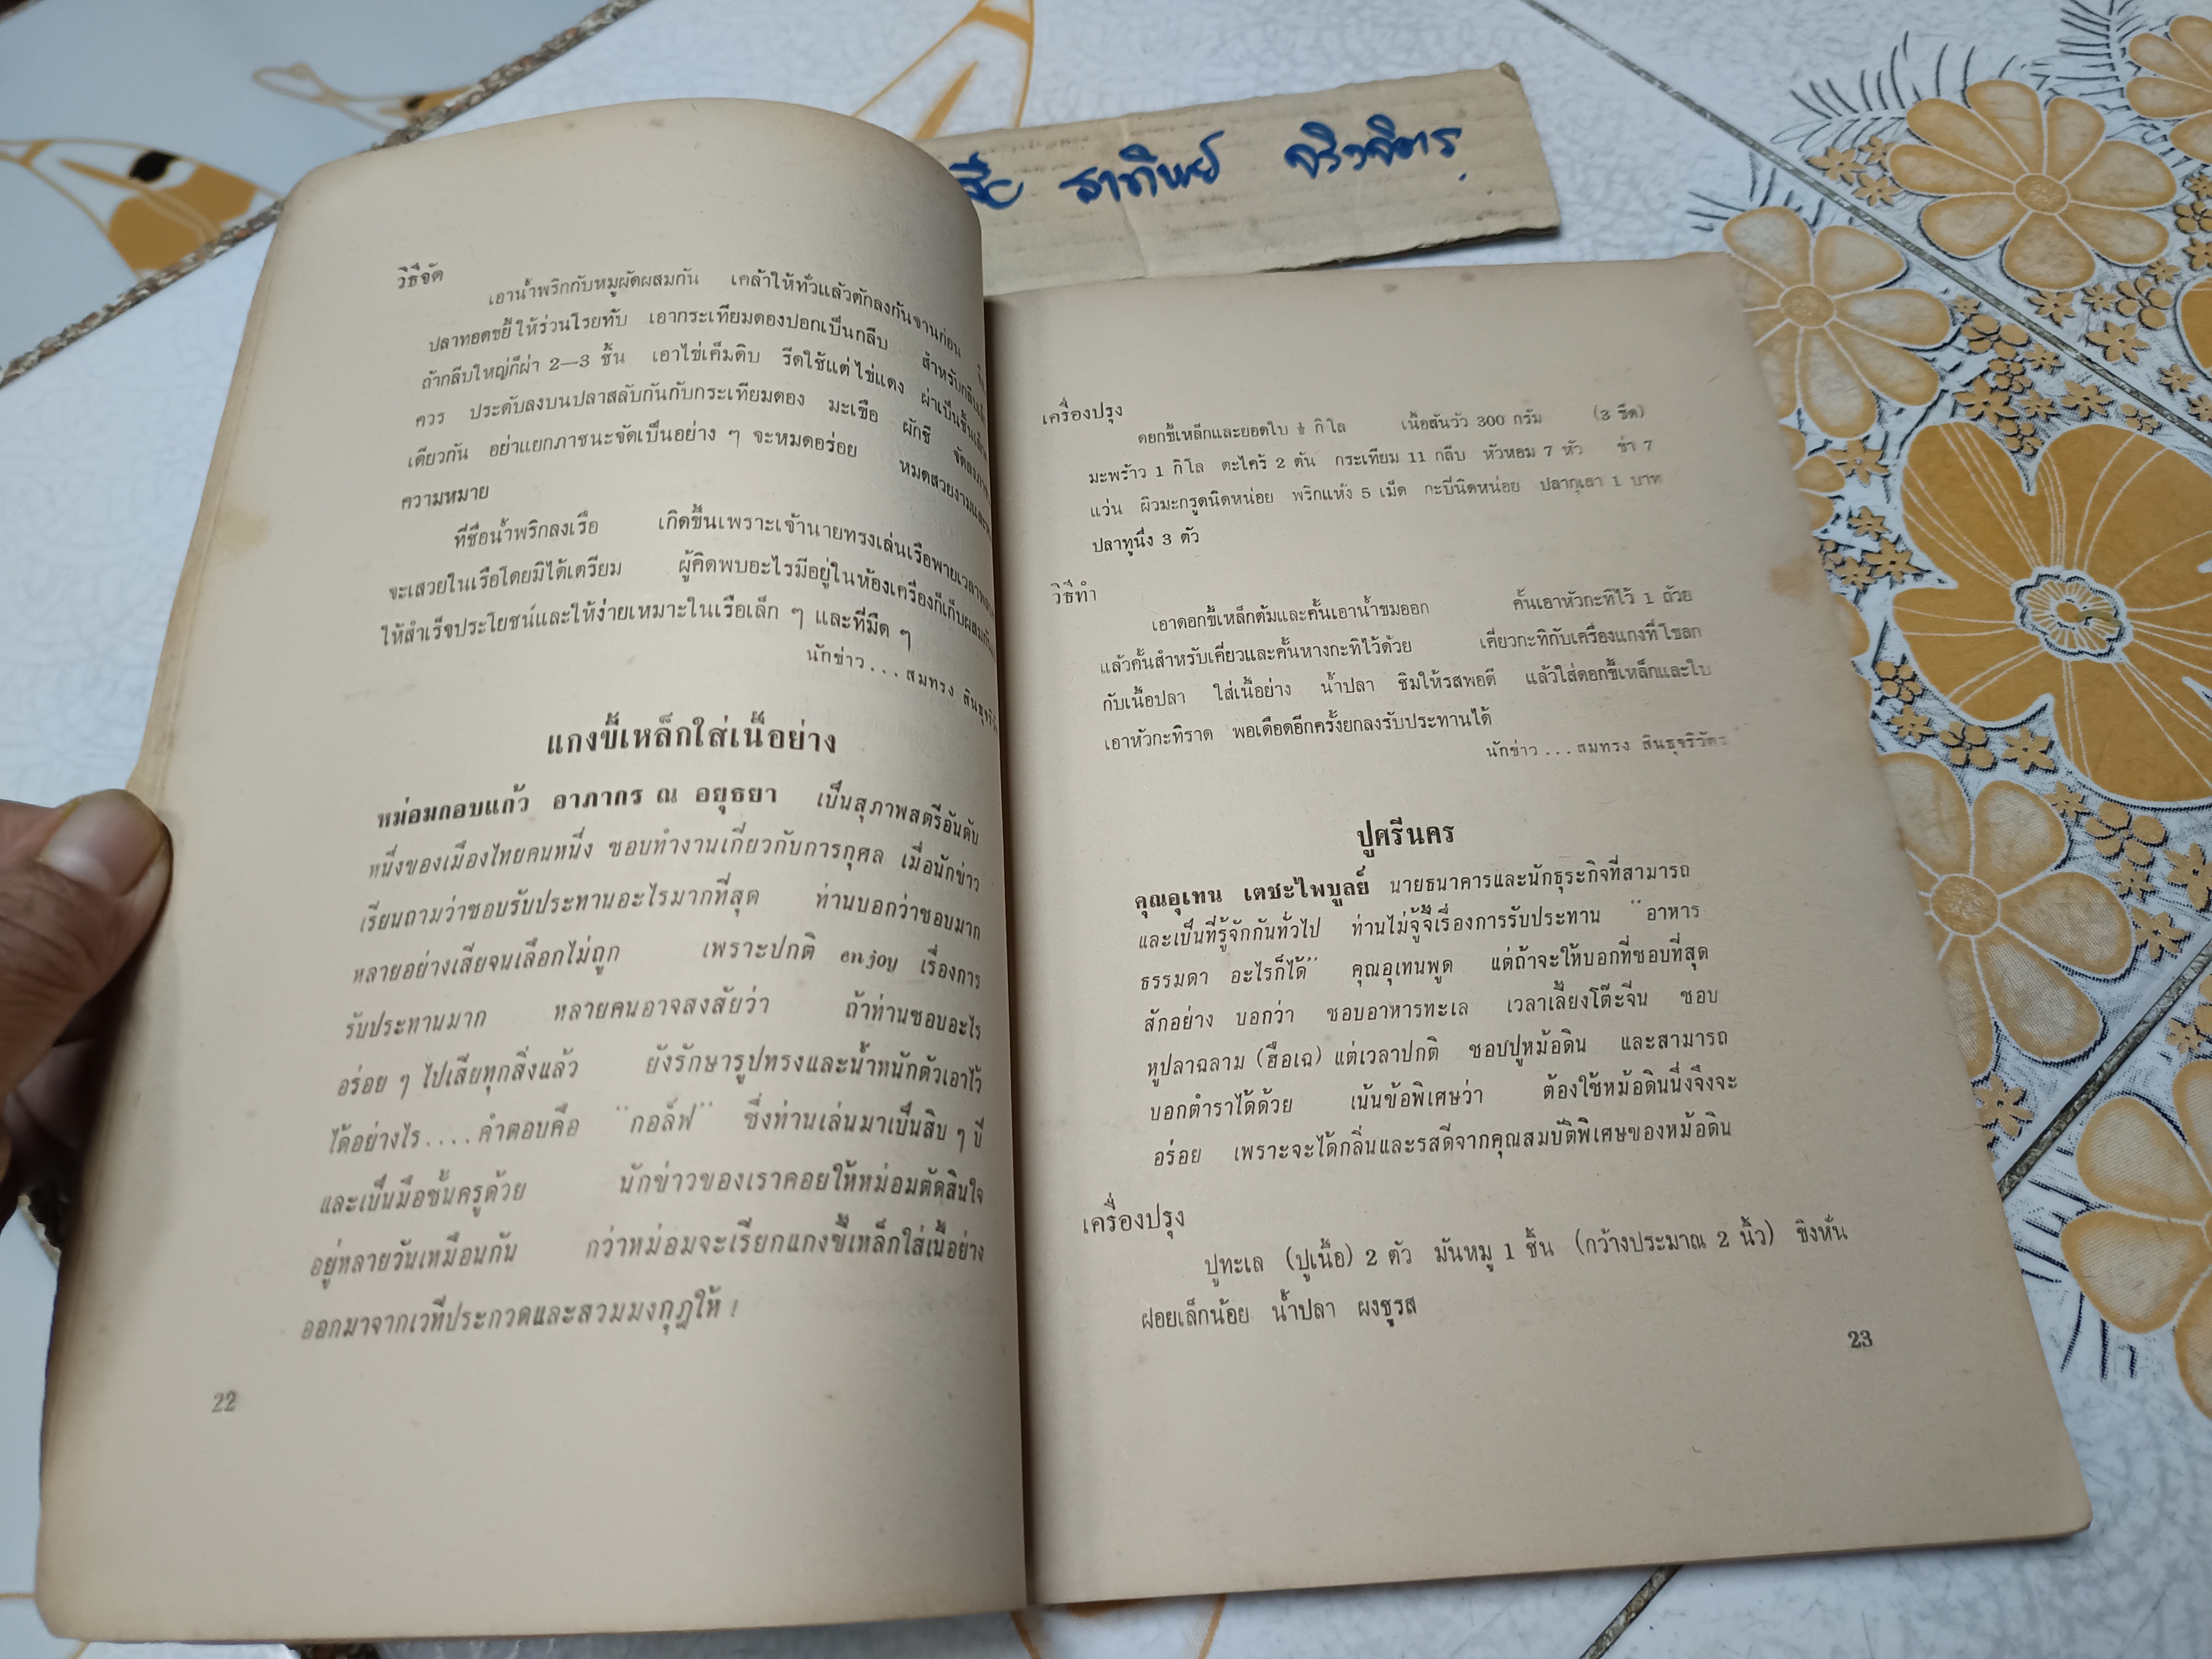 ธาทิพย์
วิธีจัด
เอาน้ำพริกกับหมูผัดผสมกัน เคล้าให้ทั่วแล้วตักลงก้นจานก่อน
ปลาทอดขยี้ให้ร่วนโรยทับ เอากระเทียมดองปอกเป็นกลีบ สำหรับกลีบเล็ก
ถ้ากลีบใหญ่ก็ผ่า 2—3 ชิ้น เอาไข่เค็มดิบ รีดใช้แต่ไข่แดง ผ่าเป็นชิ้นเล็ก
ควร ประดับลงบนปลาสลับกันกับกระเทียมดอง มะเขือ ผักชี จัดลงภาชนะ
เดียวกัน อย่าแยกภาชนะจัดเป็นอย่าง ๆ จะหมดอร่อย หมดสวยงามและ
ความหมาย
ที่ชื่อน้ำพริกลงเรือ เกิดขึ้นเพราะเจ้านายทรงเล่นเรือพายเวลา
จะเสวยในเรือโดยมิได้เตรียม ผู้คิดพบอะไรมีอยู่ในห้องเครื่องก็เก็บผสมกัน
ให้สำเร็จประโยชน์และให้ง่ายเหมาะในเรือเล็ก ๆ และที่มืด ๆ
นักข่าว...สมทรง สินธุจริวัตร
แกงขี้เหล็กใส่เนื้อย่าง
หม่อมกอบแก้ว อาภากร ณ อยุธยา เป็นสุภาพสตรีอันดับ
หนึ่งของเมืองไทยคนหนึ่ง ชอบทำงานเกี่ยวกับการกุศล เมื่อนักข่าว
เรียนถามว่าชอบรับประทานอะไรมากที่สุด ท่านบอกว่าชอบมาก
หลายอย่างเสียจนเลือกไม่ถูก เพราะปกติ enjoy เรื่องการ
รับประทานมาก หลายคนอาจสงสัยว่า ถ้าท่านชอบอะไร
อร่อย ๆ ไปเสียทุกสิ่งแล้ว ยังรักษารูปทรงและน้ำหนักตัวเอาไว้
ได้อย่างไร....คำตอบคือ "กอล์ฟ" ซึ่งท่านเล่นมาเป็นสิบ ๆ ปี
และเป็นมือชั้นครูด้วย นักข่าวของเราคอยให้หม่อมตัดสินใจ
อยู่หลายวันเหมือนกัน กว่าหม่อมจะเรียกแกงขี้เหล็กใส่เนื้อย่าง
ออกมาจากเวทีประกวดและสวมมงกุฎให้ !
22
เครื่องปรุง
ดอกขี้เหล็กและยอดใบ ½ กิโล เนื้อสันวัว 300 กรัม (3 ขีด)
มะพร้าว 1 กิโล ตะไคร้ 2 ต้น กระเทียม 11 กลีบ หัวหอม 7 หัว ข่า 7
แว่น ผิวมะกรูดนิดหน่อย พริกแห้ง 5 เม็ด กะปินิดหน่อย ปลากุเลา 1 บาท
ปลาทูนึ่ง 3 ตัว
วิธีทำ
เอาดอกขี้เหล็กต้มและคั้นเอาน้ำขมออก คั้นเอาหัวกะทิไว้ 1 ถ้วย
แล้วคั้นสำหรับเคี่ยวและคั้นหางกะทิไว้ด้วย เคี่ยวกะทิกับเครื่องแกงที่โขลก
กับเนื้อปลา ใส่เนื้อย่าง น้ำปลา ชิมให้รสพอดี แล้วใส่ดอกขี้เหล็กและใบ
เอาหัวกะทิราด พอเดือดอีกครั้งยกลงรับประทานได้
นักข่าว...สมทรง สินธุจริวัตร
ปูศรีนคร
คุณอุเทน เตชะไพบูลย์ นายธนาคารและนักธุระกิจที่สามารถ
และเป็นที่รู้จักกันทั่วไป ท่านไม่จู้จี้เรื่องการรับประทาน "อาหาร
ธรรมดา อะไรก็ได้" คุณอุเทนพูด แต่ถ้าจะให้บอกที่ชอบที่สุด
สักอย่าง บอกว่า ชอบอาหารทะเล เวลาเลี้ยงโต๊ะจีน ชอบ
หูปลาฉลาม (ฮือเฉ) แต่เวลาปกติ ชอบปูหม้อดิน และสามารถ
บอกตำราได้ด้วย เน้นข้อพิเศษว่า ต้องใช้หม้อดินนึ่งจึงจะ
อร่อย เพราะจะได้กลิ่นและรสดีจากคุณสมบัติพิเศษของหม้อดิน
เครื่องปรุง
ปูทะเล (ปูเนื้อ) 2 ตัว มันหมู 1 ชิ้น (กว้างประมาณ 2 นิ้ว) ขิงหั่น
ฝอยเล็กน้อย น้ำปลา ผงชูรส
23